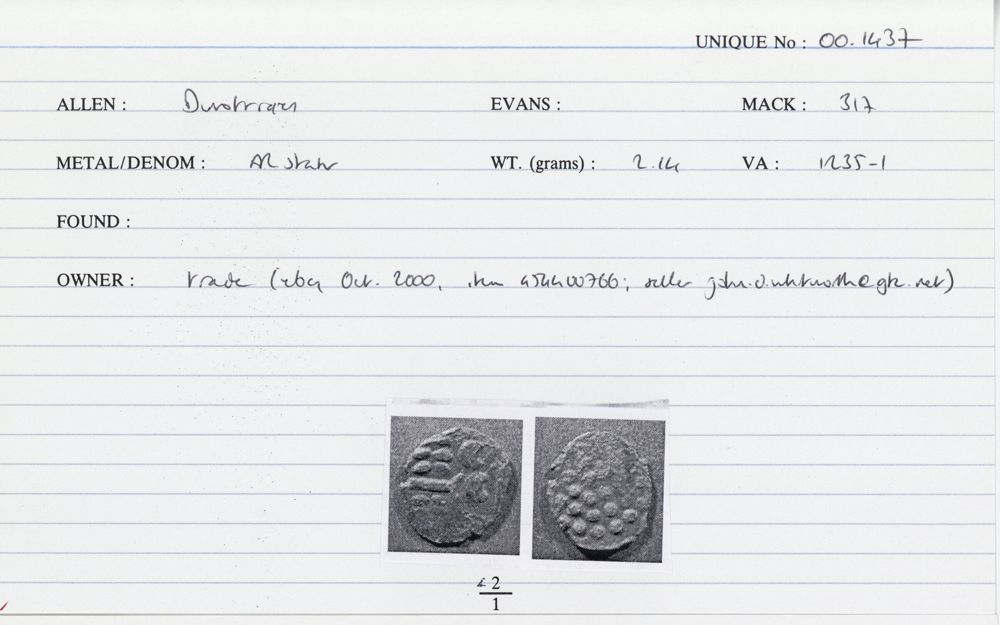 UNIQUE No : 00.1437
ALLEN : Durotrigan EVANS : MACK : 317
METAL/DENOM : AR stater WT. (grams) : 2.14 VA : 1235-1
FOUND :
OWNER : trade (ebay Oct. 2000, item 454400766; seller
2
1